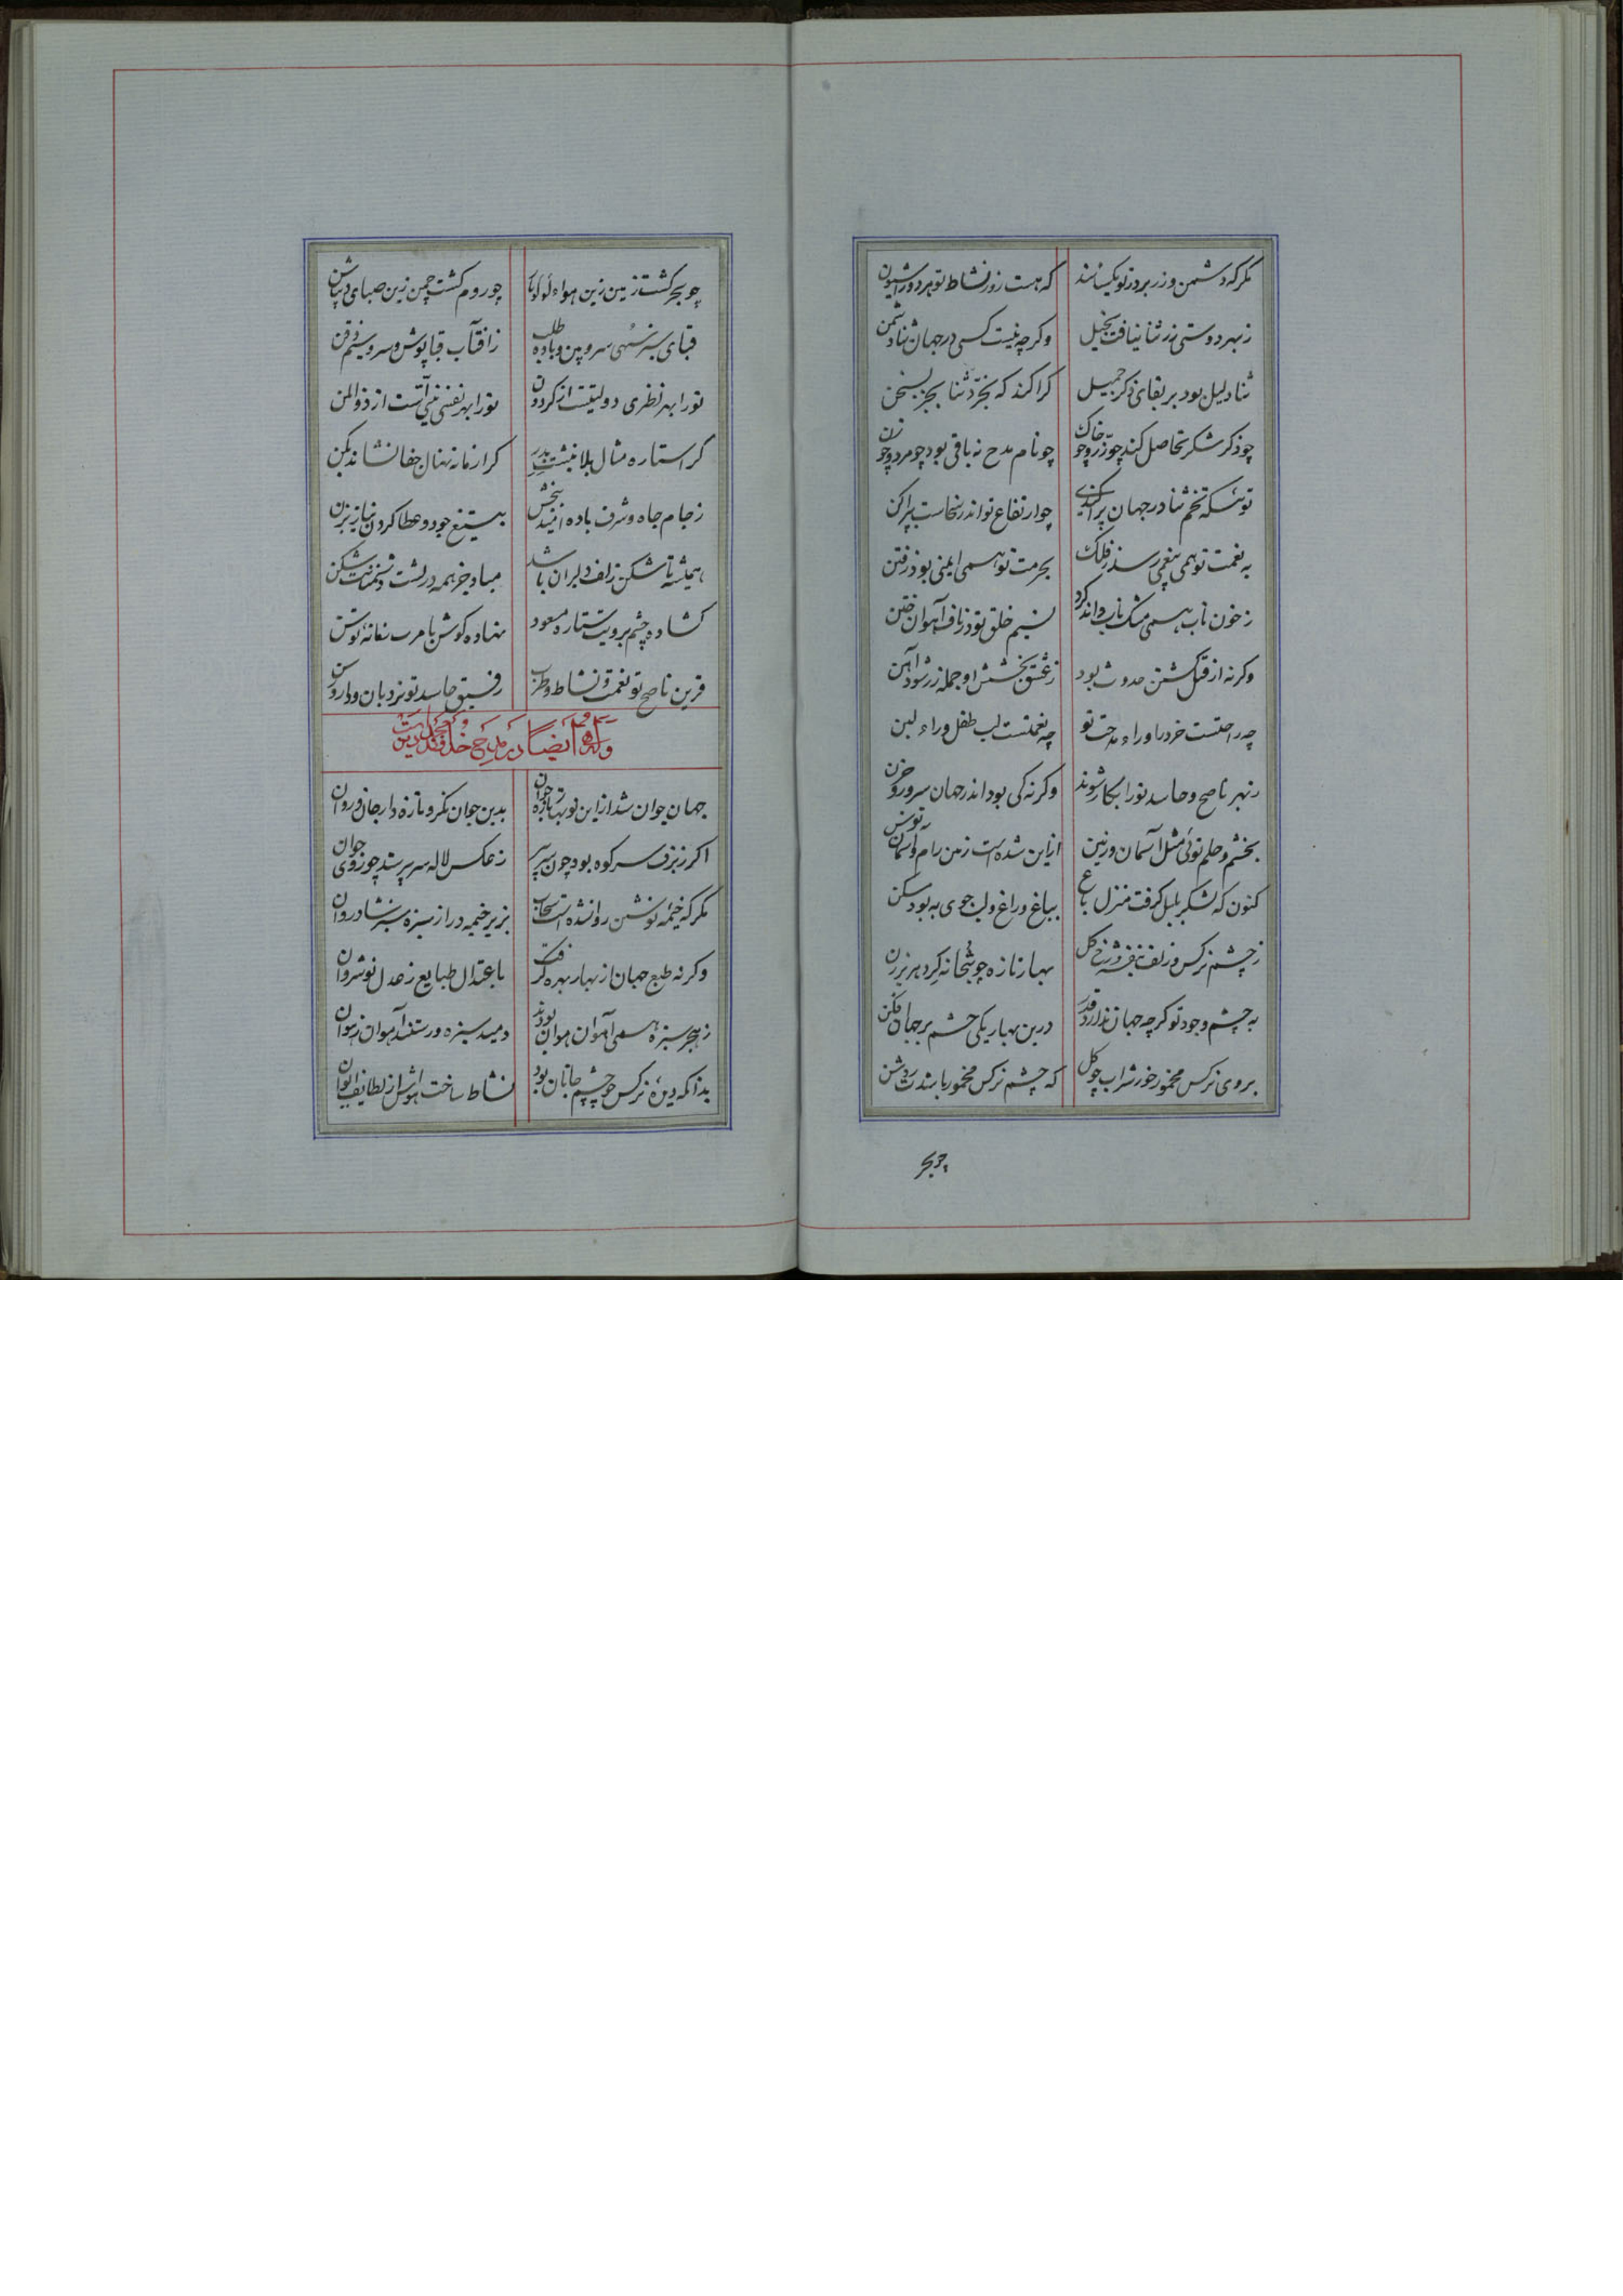 مکر که دشمن و زر بر در تو یکسانند که هست روز نشاط تو هر دو را شیون
ز بهر دوستی زر ثنا نیافت بخیل وکرچه نیست کسی در جهان ثنا دشمن
ثنا دلیل بود بر بقای ذکر جمیل کرا کند که بخرد ثنا بجز بسخن
چو ذکر شکر تحاصل کند چو زر و چو خاک چو نام مدح نه باقی بود چو مرد و چو زن
توئیکه تخم ثنا در جهان پراکندی چو ارتفاع تو اندر سخاست بپراکن
به نعمت تو همی پیغمی رسد ز فلک بحرمت تو همی ایمنی بود ز فتن
ز خون ناب همی مشک ناب داند کرد نسیم خلق تو در ناف آهوان ختن
وکرنه از قبل کشتن عدوش بود ز عشق بخشش او جمله زر شود آهن
چه راحتست خرد را وراء مدحت تو چه نعمتست لب طفل وراء لبن
ز بهر ناصح و حاسد تو را بکار شوند وکرنه کی بود اندر جهان سرور و حزن
بخشم و حلم توئی مثل آسمان و زمین از این شده است زمن رام و آسمان توسن
کنون که لشکر بلبل کرفت منزل باغ بباغ و راغ و لب جوی به بود مسکن
ز چشم نرکس و زلف بنفشه و رخ کل بهار تازه چو بتخانه کرد هر برزن
به چشم وجود تو کرچه جهان ندارد قدر درین بهار یکی چشم بر جهان فکن
بروی نرکس مخمور خور شراب چو کل که چشم نرکس مخمور باشدت روشن
چو بحر
چو بحر کشت زمین زین هواء لولو بار چو روم کشت چمن زین صبای دیباتن
قبای سبز سهی سرو بین و باده طلب ز آفتاب قباپوش و سرو سیم ذقن
تو را بهر نظری دولتیست از کردون تو را بهر نفسی منتی است از ذوالمن
کر استاره مثال بلا نبشت بدر کرا زمانه نهال جفا نشاند بکن
ز جام جاه و شرف باده امید ببخش بتیغ جود و عطا کردن نیاز بزن
همیشه تا شکن زلف دلبران باشد مباد جز همه در پشت دشمنانت شکن
کشاده چشم برویت ستاره مسعود نهاده کوش بامرت زمانهٔ توسن
قرین ناصح تو نعمت و نشاط و طرب رفیق حاسد تو نردبان و دار و رسن
وله ایضا در مدح
جهان جوان شد از این نوبهار تازه جوان بدین جوان نکر و تازه دار جان و روان
اکر ز برف سر کوه بود چون سر پیر ز عکس لاله سر پیر شد چو روی جوان
مکر که خیمه نوشین روان شده است سحاب بزیر خیمه در از سبزه سبز شادروان
وکرنه طبع جهان از بهار بهره کرفت باعتدال طبایع ز عدل نوشروان
ز هجر سبزه همی آهوان هوان بودند دمید سبزه و رستند آهوان ز هوان
بدانکه دیدهٔ نرکس چو چشم جانان بود نشاط ساخت